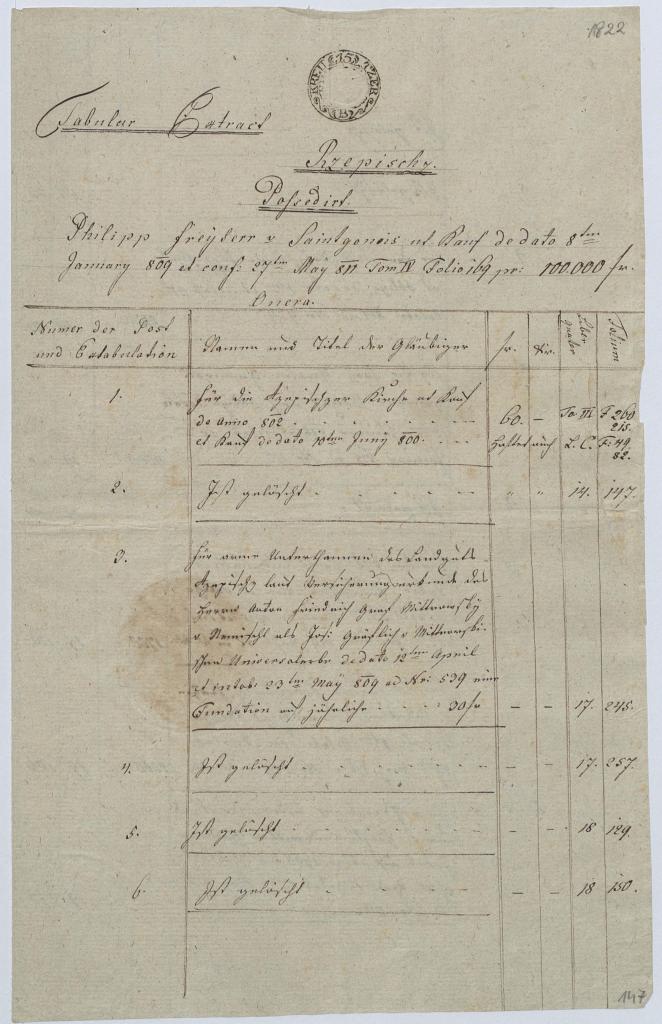 1822
KREU 15 TZER
Tabular Extract
Rzepischz.
Possedirt.
Philipp Freyherr v Saintgenois ut Kauf de dato 8ten
January 809 et conf: 27ten May 811 Tom IV Folio 169 pr: 100.000 fr.
Onera.
Numer der Post
und Extabulation
Namen und Titel der Gläubiger
fr.
Xr.
Liber
quale
Folium
1. Für die Rzepischzer Kirche ut Kauf
de Anno 802 60. — To III F 260
215.
et Kauf de dato 10ten Juny 800. haftet auch L. C. F: 49
82.
2. Ist gelöscht " " 14. 147.
3. Für arme Unterthannen des Landguts
Rzepischz laut Versicherungsurkunde des
Herrn Anton Friedrich Graf Mittrowsky
v Nemischl als Josef Gräflich v Mittrowski-
schen Universalerbe de dato 12ten April
et intab: 23ten May 809 ad Nr: 539 eine
Fundation auf jährliche 30 fr — — 17. 245.
4. Ist gelöscht — — 17. 257.
5. Ist gelöscht — — 18 129.
6. Ist gelöscht — — 18 150.
147